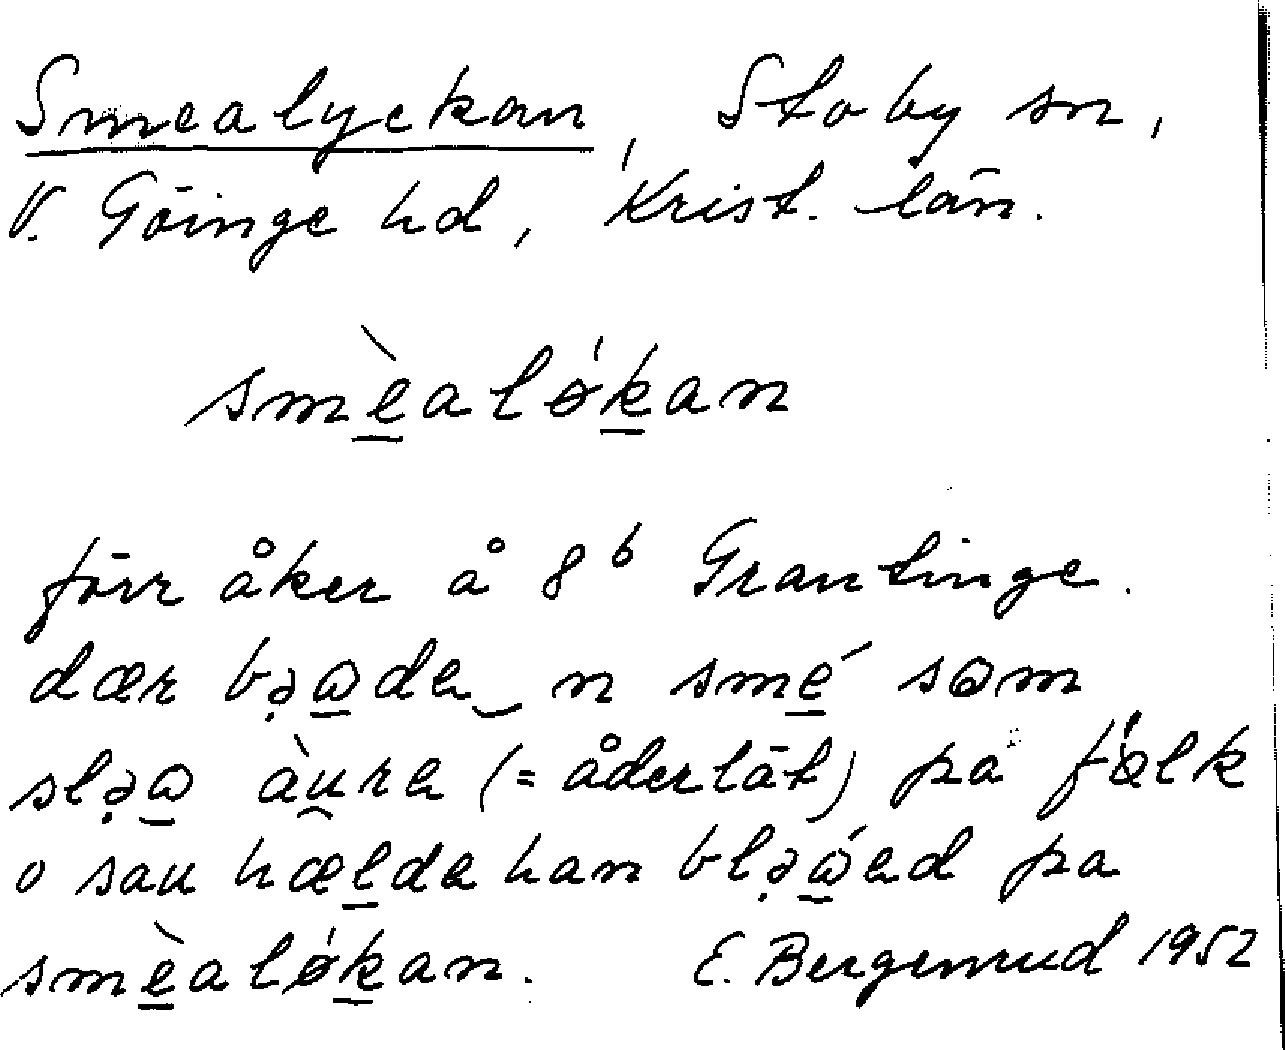 Smealyckan, Stoby sn,
V. Göinge hd, Krist. län.
smèaløkan
förr åker å 8⁶ Grantinge.
dær bəɷde n smé sɷm
sləɷ àure (= åderlät) på fɷlk
o sau hælde han bləɷed pa
smèaløkan. E. Bergenrud 1952